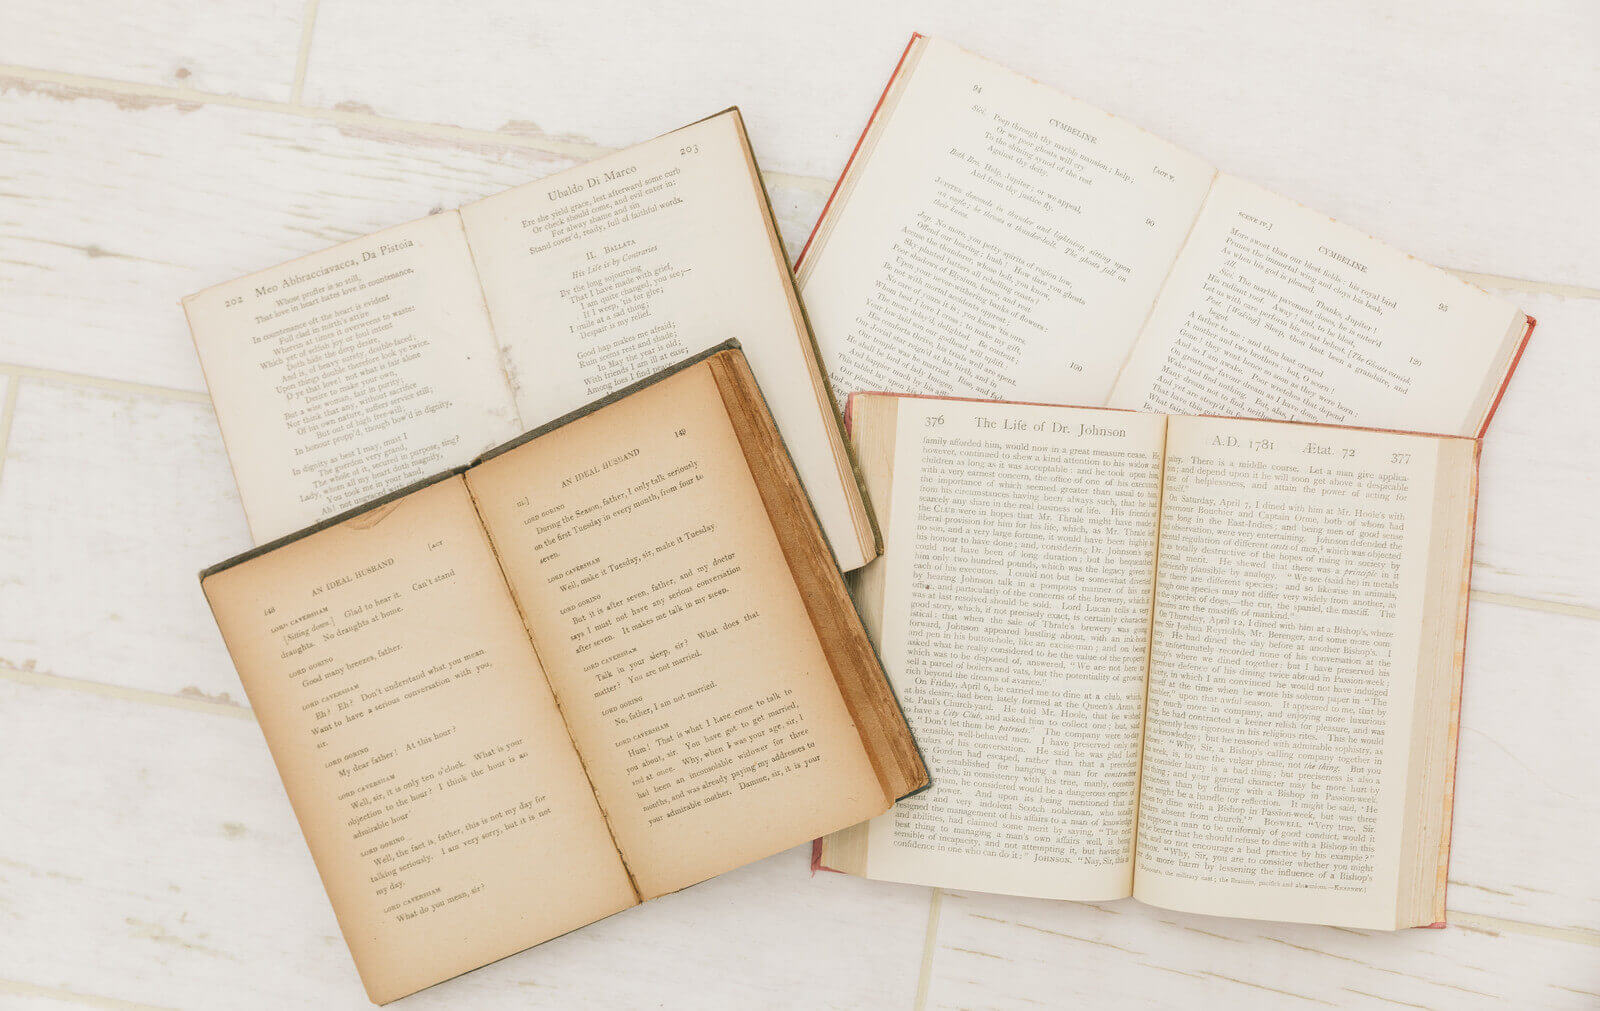 202 Meo Abbracciavacca, Da Pistoia
Whose proffer is so still,
That love in heart hates love in countenance.
In countenance oft the heart is evident
Full clad in mirth's attire
Wherein at times it overweens to waste:
Which yet of selfish joy or foul intent
Doth hide the deep desire,
And is, of heavy surety, double-faced;
Upon things double therefore look ye twice.
O ye that love! not what is fair alone
Desire to make your own,
But a wise woman, fair in purity;
Nor think that any, without sacrifice
Of his own nature, suffers service still;
But out of high free-will,
In honour propp'd, though bow'd in dignity.
In dignity as best I may, must I
The guerdon very grand,
The whole of it, secured in purpose, sing?
Lady, whom all my heart doth magnify,
You took me in your hand,
Ah! not ungraced with
Ubaldo Di Marco 203
Ere she yield grace, lest afterward some curb
Or check should come, and evil enter in;
For alway shame and sin
Stand cover'd, ready, full of faithful words.
II. Ballata
His Life is by Contraries
By the long sojourning
That I have made with grief,
I am quite changed, you see;—
If I weep, 'tis for glee;
I smile at a sad thing;
Despair is my relief.
Good hap makes me afraid;
Ruin seems rest and shade;
In May the year is old;
With friends I am ill at ease;
Among foes I find peace;
94 CYMBELINE [ACT V.
Sici. Peep through thy marble mansion; help;
Or we poor ghosts will cry
To the shining synod of the rest
Against thy deity.
Both Bro. Help, Jupiter; or we appeal,
And from thy justice fly. 90
Jupiter descends in thunder and lightning, sitting upon
an eagle; he throws a thunder-bolt. The ghosts fall on
their knees.
Jup. No more, you petty spirits of region low,
Offend our hearing; hush! How dare you ghosts
Accuse the thunderer, whose bolt, you know,
Sky-planted batters all rebelling coasts?
Poor shadows of Elysium, hence, and rest
Upon your never-withering banks of flowers:
Be not with mortal accidents opprest;
No care of yours it is; you know 'tis ours.
Whom best I love I cross; to make my gift,
The more delay'd, delighted. Be content;
Your low-laid son our godhead will uplift:
His comforts thrive, his trials well are spent.
Our Jovial star reign'd at his birth, and in
Our temple was he married. Rise, and fade. 100
He shall be lord of lady Imogen,
And happier much by his affliction made.
This tablet lay
SCENE IV.] CYMBELINE 95
More sweet than our blest fields: his royal bird
Prunes the immortal wing and cloys his beak,
As when his god is pleased.
All. Thanks, Jupiter!
Sici. The marble pavement closes, he is enter'd
His radiant roof. Away! and, to be blest,
Let us with care perform his great behest. [The Ghosts vanish. 120
Post. [Waking] Sleep, thou hast been a grandsire, and
begot
A father to me; and thou hast created
A mother and two brothers: but, O scorn!
Gone! they went hence so soon as they were born:
And so I am awake. Poor wretches that depend
On greatness' favour dream as I have done,
Wake and find nothing. But, alas, I swerve:
Many dream not to find, neither deserve,
And yet are steep'd in favours; so am I,
148 AN IDEAL HUSBAND [ACT
LORD CAVERSHAM
[Sitting down.] Glad to hear it. Can't stand
draughts. No draughts at home.
LORD GORING
Good many breezes, father.
LORD CAVERSHAM
Eh? Eh? Don't understand what you mean.
Want to have a serious conversation with you,
sir.
LORD GORING
My dear father! At this hour?
LORD CAVERSHAM
Well, sir, it is only ten o'clock. What is your
objection to the hour? I think the hour is an
admirable hour!
LORD GORING
Well, the fact is, father, this is not my day for
talking seriously. I am very sorry, but it is not
my day.
LORD CAVERSHAM
What do you mean, sir?
III.] AN IDEAL HUSBAND 149
LORD GORING
During the Season, father, I only talk seriously
on the first Tuesday in every month, from four to
seven.
LORD CAVERSHAM
Well, make it Tuesday, sir, make it Tuesday.
LORD GORING
But it is after seven, father, and my doctor
says I must not have any serious conversation
after seven. It makes me talk in my sleep.
LORD CAVERSHAM
Talk in your sleep, sir? What does that
matter? You are not married.
LORD GORING
No, father, I am not married.
LORD CAVERSHAM
Hum! That is what I have come to talk to
you about, sir. You have got to get married,
and at once. Why, when I was your age, sir, I
had been an inconsolable widower for three
months, and was already paying my addresses to
your admirable mother. Damme, sir, it is your
376 The Life of Dr. Johnson
family afforded him, would now in a great measure cease. He
however, continued to shew a kind attention to his widow and
children as long as it was acceptable: and he took upon him,
with a very earnest concern, the office of one of his executors
the importance of which seemed greater than usual to him
from his circumstances having been always such, that he had
scarcely any share in the real business of life. His friends of
the CLUB were in hopes that Mr. Thrale might have made a
liberal provision for him for his life, which, as Mr. Thrale left
no son, and a very large fortune, it would have been highly to
his honour to have done; and, considering Dr. Johnson's age,
could not have been of long duration; but he bequeathed
him only two hundred pounds, which was the legacy given to
each of his executors. I could not but be somewhat diverted
by hearing Johnson talk in a pompous manner of his new
office, and particularly of the concerns of the brewery, which it
was at last resolved should be sold. Lord Lucan tells a very
good story, which, if not precisely exact, is certainly character-
istical: that when the sale of Thrale's brewery was going
forward, Johnson appeared bustling about, with an ink-horn
and pen in his button-hole, like an excise-man; and on being
asked what he really considered to be the value of the property
which was to be disposed of, answered, "We are not here to
sell a parcel of boilers and vats, but the potentiality of growing
rich beyond the dreams of avarice."
On Friday, April 6, he carried me to dine at a club, which,
at his desire, had been lately formed at the Queen's Arms, in
St. Paul's Church-yard. He told Mr. Hoole, that he wished
to have a City Club, and asked him to collect one; but, said
"Don't let them be patriots." The company were to-
sensible, well-behaved men. I have preserved only two
of his conversation. He said he was glad Lord
Gordon had escaped, rather than that a precedent
be established for hanging a man for constructive
which, in consistency with his true, manly, constitu-
he considered would be a dangerous engine of
power. And upon its being mentioned that an
and very indolent Scotch nobleman, who totally
resigned the management of his affairs to a man of knowledge
and abilities, had claimed some merit by saying, "The next
best thing to managing a man's own affairs well, is being
sensible of incapacity, and not attempting it, but having full
confidence in one who can do it:" JOHNSON. "Nay, Sir, this is
A.D. 1781 Ætat. 72 377
There is a middle course. Let a man give applica-
tion; and depend upon it he will soon get above a despicable
state of helplessness, and attain the power of acting for
On Saturday, April 7, I dined with him at Mr. Hoole's with
Governour Bouchier and Captain Orme, both of whom had
been long in the East-Indies; and being men of good sense
and observation, were very entertaining. Johnson defended the
oriental regulation of different casts of men, which was objected
as totally destructive of the hopes of rising in society by
He shewed that there was a principle in it
sufficiently plausible by analogy. "We see (said he) in metals
that there are different species; and so likewise in animals,
though one species may not differ very widely from another, as
the species of dogs,—the cur, the spaniel, the mastiff. The
are the mastiffs of mankind."
On Thursday, April 12, I dined with him at a Bishop's, where
were Sir Joshua Reynolds, Mr. Berenger, and some more com-
He had dined the day before at another Bishop's. I
unfortunately recorded none of his conversation at the
where we dined together: but I have preserved his
ingenious defence of his dining twice abroad in Passion-week;
in which I am convinced he would not have indulged
himself at the time when he wrote his solemn paper in "The
Rambler," upon that awful season. It appeared to me, that by
much more in company, and enjoying more luxurious
he had contracted a keener relish for pleasure, and was
consequently less rigorous in his religious rites. This he would
not acknowledge; but he reasoned with admirable sophistry, as
"Why, Sir, a Bishop's calling company together in
week, is, to use the vulgar phrase, not the thing. But you
must consider laxity is a bad thing; but preciseness is also a
thing; and your general character may be more hurt by
preciseness than by dining with a Bishop in Passion-week.
There might be a handle for reflection. It might be said, 'He
refuses to dine with a Bishop in Passion-week, but was three
Sundays absent from church.'" BOSWELL. "Very true, Sir.
But suppose a man to be uniformly of good conduct, would it
not be better that he should refuse to dine with a Bishop in this
week, and so not encourage a bad practice by his example?"
"Why, Sir, you are to consider whether you might
not do more harm by lessening the influence of a Bishop's